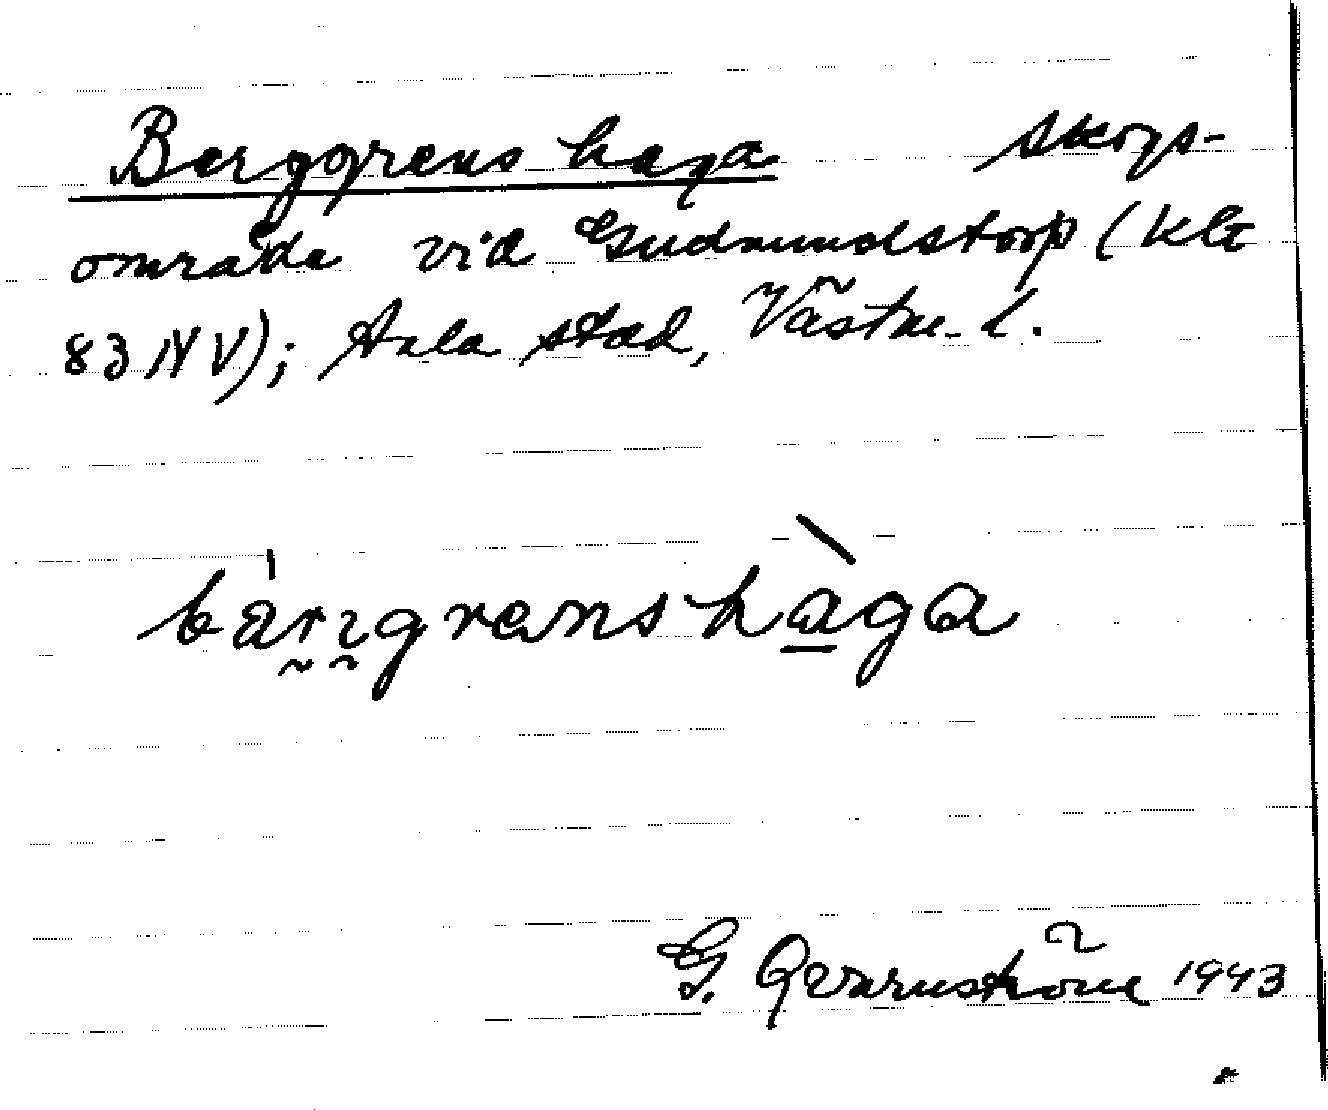 Berggrens haga skogs-
område vid Gudmundstorp (kbl
83 NV); Sala stad, Västm. l.
bärgrenshàga
G. Qvarnström 1943